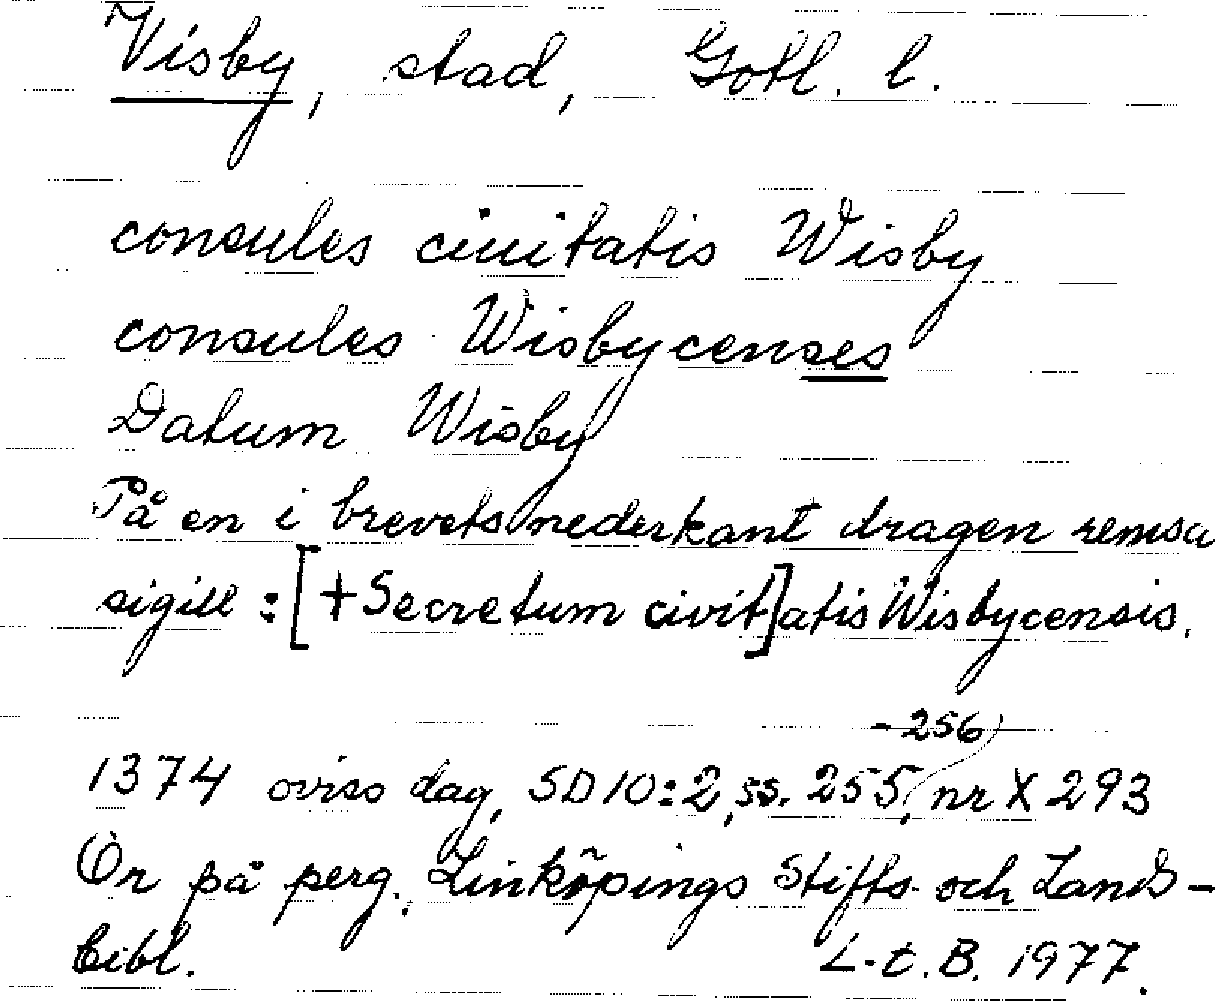 Visby, stad, Gotl. l.
consules ciuitatis Wisby
consules Wisbycenses
Datum Wisby
På en i brevets nederkant dragen remsa
sigill : [+ Secretum civit]atis Wisbycensis.
- 256
1374 oviss dag, SD 10:2, ss. 255, nr X 293
Or på perg. Linköpings Stifts- och Lands-
bibl. L-t. B. 1977.